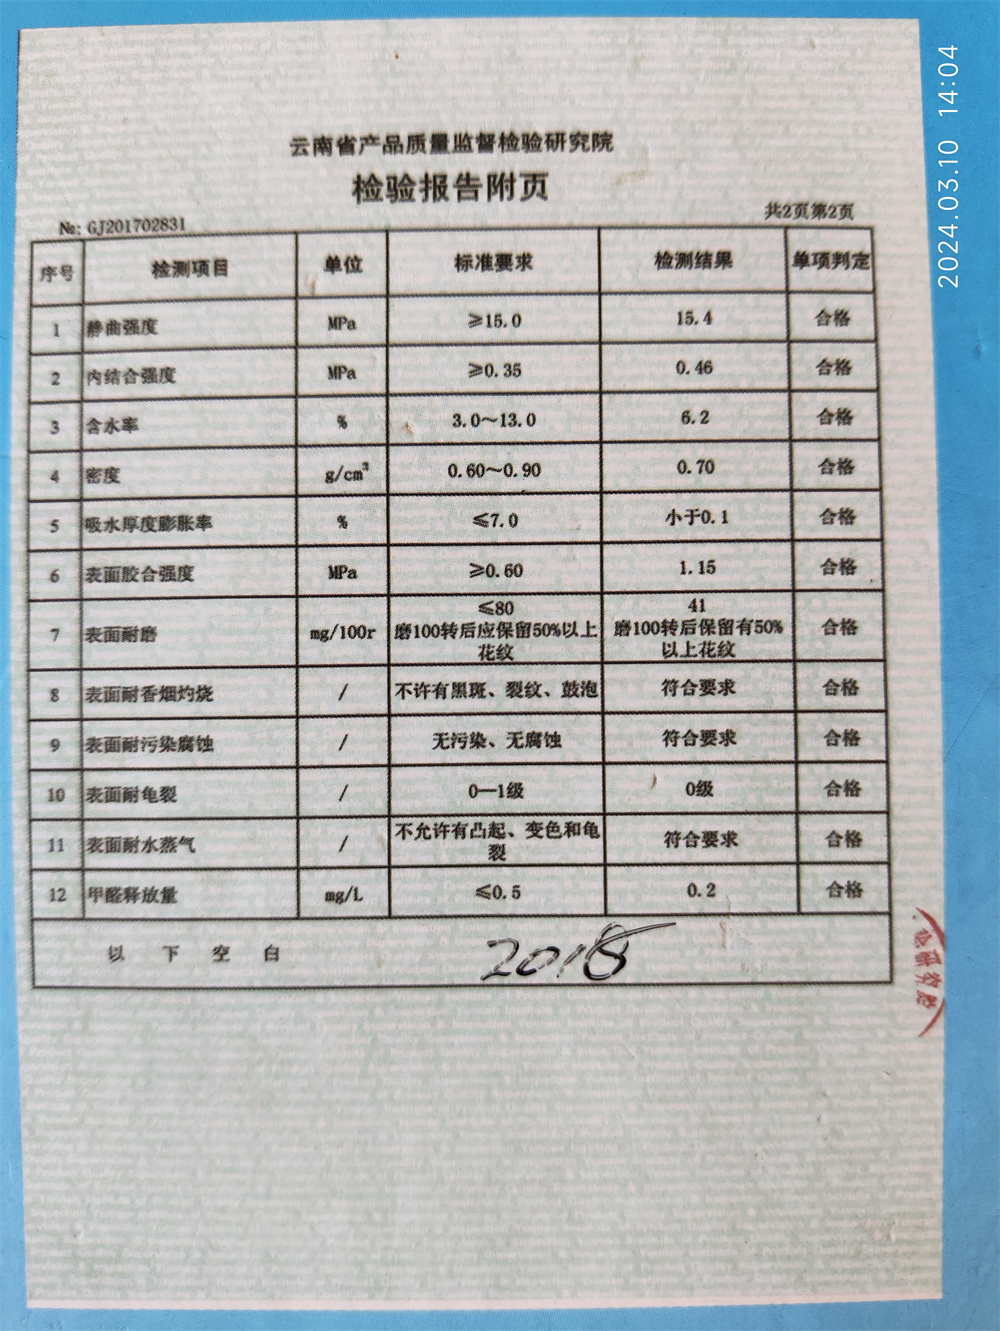 云南省产品质量监督检验研究院
检验报告附页
№: GJ201702831 共2页第2页
序号 检测项目 单位 标准要求 检测结果 单项判定
1 静曲强度 MPa ≥15.0 15.4 合格
2 内结合强度 MPa ≥0.35 0.46 合格
3 含水率 % 3.0～13.0 6.2 合格
4 密度 g/cm³ 0.60～0.90 0.70 合格
5 吸水厚度膨胀率 % ≤7.0 小于0.1 合格
6 表面胶合强度 MPa ≥0.60 1.15 合格
7 表面耐磨 mg/100r ≤80 磨100转后应保留50%以上花纹 41 磨100转后保留有50%以上花纹 合格
8 表面耐香烟灼烧 / 不许有黑斑、裂纹、鼓泡 符合要求 合格
9 表面耐污染腐蚀 / 无污染、无腐蚀 符合要求 合格
10 表面耐龟裂 / 0—1级 0级 合格
11 表面耐水蒸气 / 不允许有凸起、变色和龟裂 符合要求 合格
12 甲醛释放量 mg/L ≤0.5 0.2 合格
以下空白 2018
2024.03.10 14:04